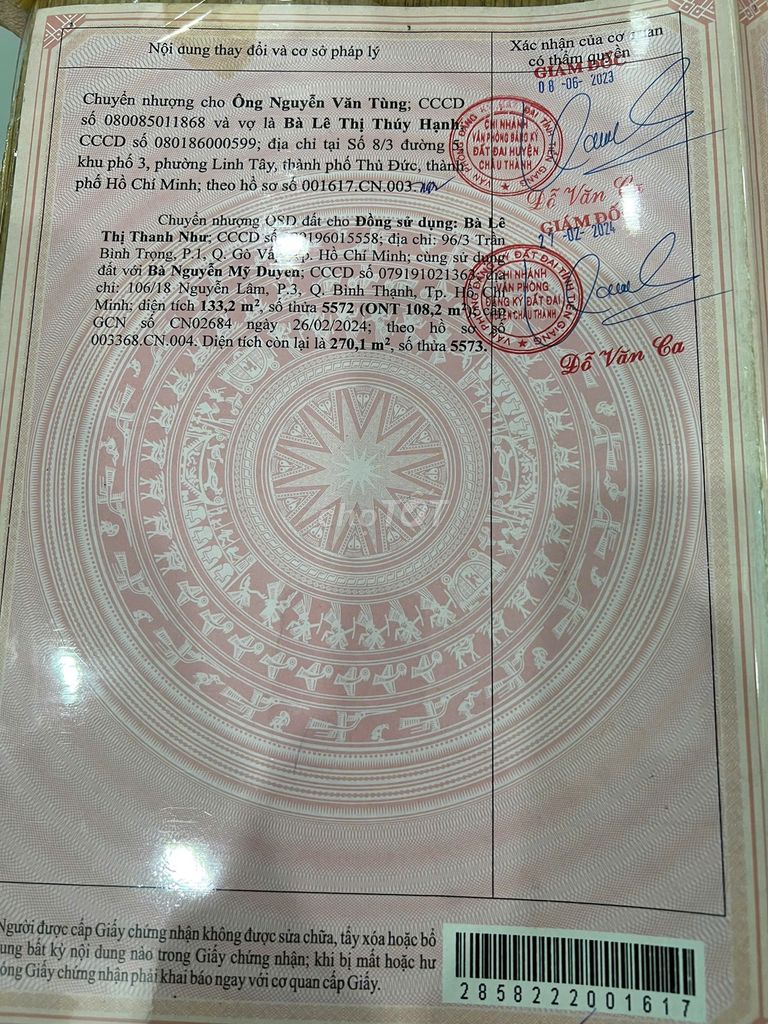 Nội dung thay đổi và cơ sở pháp lý
Xác nhận của cơ quan
có thẩm quyền
GIÁM ĐỐC
08 -06- 2023
Chuyển nhượng cho Ông Nguyễn Văn Tùng; CCCD
số 080085011868 và vợ là Bà Lê Thị Thúy Hạnh,
CCCD số 080186000599; địa chỉ tại Số 8/3 đường 5,
khu phố 3, phường Linh Tây, thành phố Thủ Đức, thành
phố Hồ Chí Minh; theo hồ sơ số 001617.CN.003.
VĂN PHÒNG ĐĂNG KÝ ĐẤT ĐAI TỈNH TIỀN GIANG
CHI NHÁNH
VĂN PHÒNG ĐĂNG KÝ
ĐẤT ĐAI HUYỆN
CHÂU THÀNH
Đỗ Văn Ca
GIÁM ĐỐ
27 -02- 2024
Chuyển nhượng QSD đất cho Đồng sử dụng: Bà Lê
Thị Thanh Như, CCCD số 96015558; địa chỉ: 96/3 Trần
Bình Trọng, P.1, Q. Gò Vấp, Tp. Hồ Chí Minh; cùng sử dụng
đất với Bà Nguyễn Mỹ Duyên; CCCD số 079191021363; địa
chỉ: 106/18 Nguyễn Lâm, P.3, Q. Bình Thạnh, Tp. Hồ Chí
Minh: diện tích 133,2 m², số thửa 5572 (ONT 108,2 m²); cấp
GCN số CN02684 ngày 26/02/2024; theo hồ sơ số
003368.CN.004. Diện tích còn lại là 270,1 m², số thửa 5573.
VĂN PHÒNG ĐĂNG KÝ ĐẤT ĐAI TỈNH TIỀN GIANG
CHI NHÁNH
VĂN PHÒNG
ĐĂNG KÝ ĐẤT ĐAI
HUYỆN CHÂU THÀNH
Đỗ Văn Ca
choTỐT
Người được cấp Giấy chứng nhận không được sửa chữa, tẩy xóa hoặc bổ
ung bất kỳ nội dung nào trong Giấy chứng nhận; khi bị mất hoặc hư
ỏng Giấy chứng nhận phải khai báo ngay với cơ quan cấp Giấy.
2858222001617